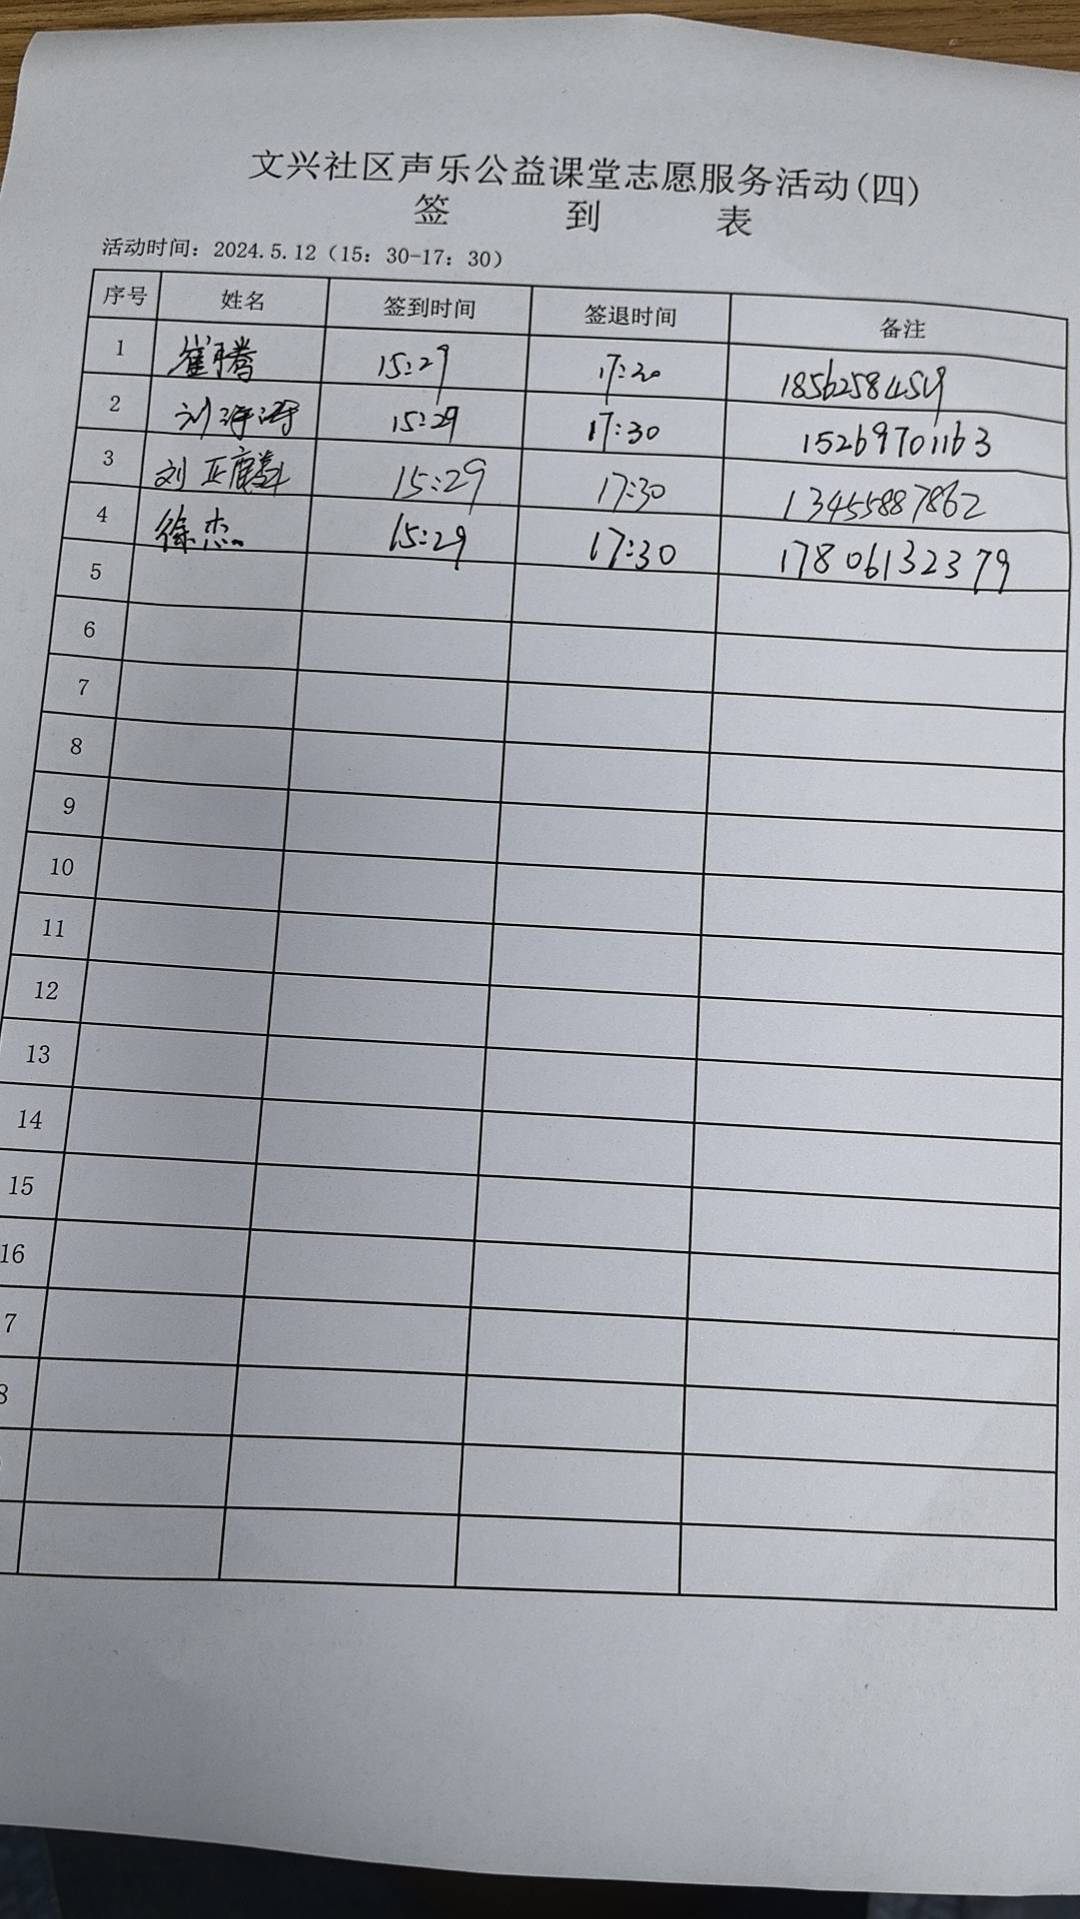 文兴社区声乐公益课堂志愿服务活动(四)
签 到 表
活动时间：2024.5.12（15：30-17：30）
序号 姓名 签到时间 签退时间 备注
1 崔腾 15:29 17:30
2 刘海涛 15:29 17:30 15269701163
3 刘正麟 15:29 17:30 13455887862
4 徐杰 15:29 17:30 17806132379
5
6
7
8
9
10
11
12
13
14
15
16
7
8